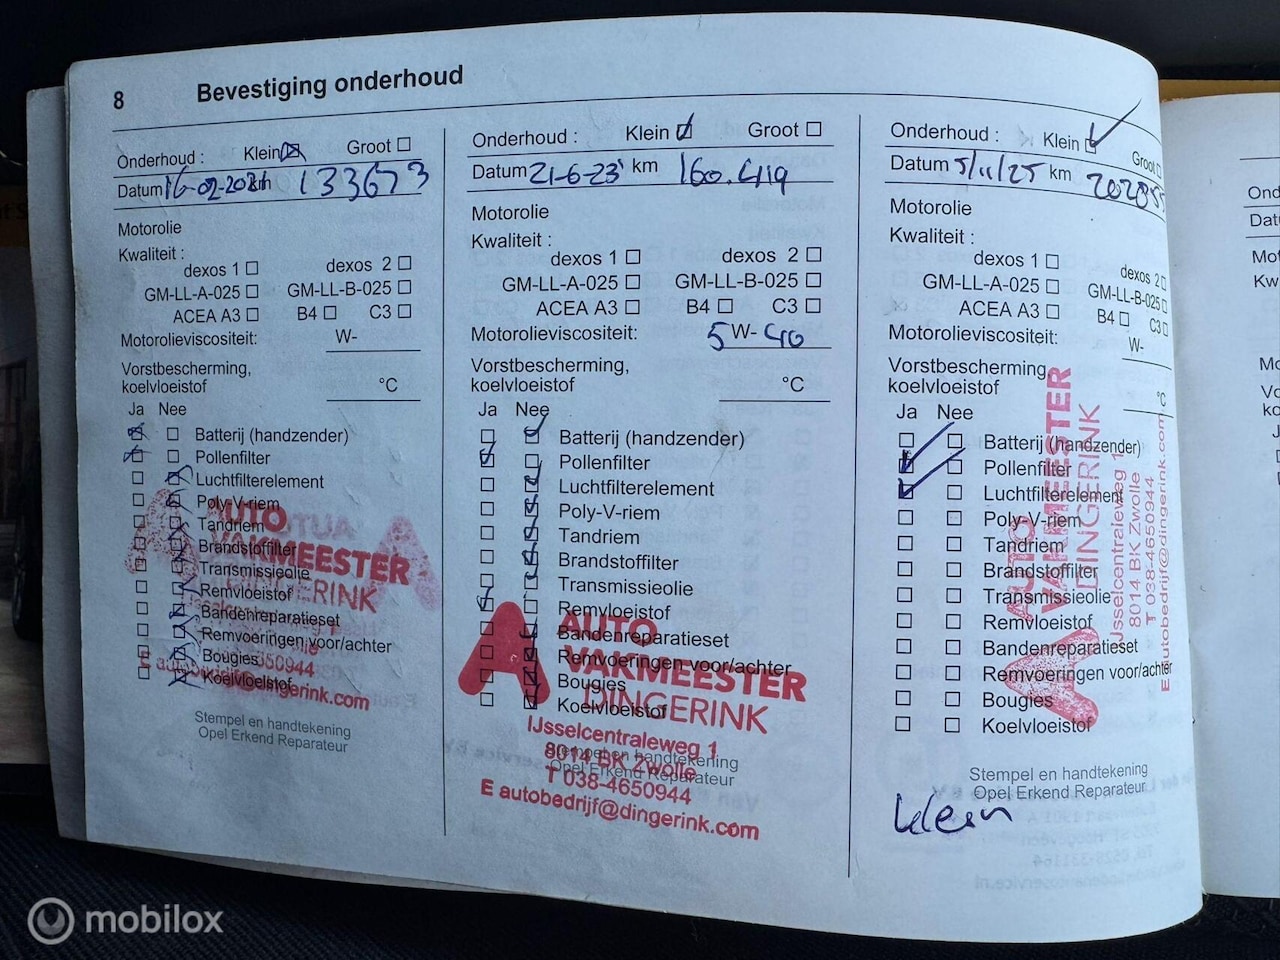 8 Bevestiging onderhoud
Onderhoud : Klein Groot
Datum 16-02-2021 133673
Motorolie
Kwaliteit :
dexos 1 dexos 2
GM-LL-A-025 GM-LL-B-025
ACEA A3 B4 C3
Motorolieviscositeit: W-
Vorstbescherming,
koelvloeistof °C
Ja Nee
Batterij (handzender)
Pollenfilter
Luchtfilterelement
Poly-V-riem
Tandriem
Brandstoffilter
Transmissieolie
Remvloeistof
Bandenreparatieset
Remvoeringen voor/achter
Bougies
Koelvloeistof
AUTO
VAKMEESTER
DINGERINK
Stempel en handtekening
Opel Erkend Reparateur
Onderhoud : Klein Groot
Datum 21-6-23 km 160.419
Motorolie
Kwaliteit :
dexos 1 dexos 2
GM-LL-A-025 GM-LL-B-025
ACEA A3 B4 C3
Motorolieviscositeit: 5 W- 40
Vorstbescherming,
koelvloeistof °C
Ja Nee
Batterij (handzender)
Pollenfilter
Luchtfilterelement
Poly-V-riem
Tandriem
Brandstoffilter
Transmissieolie
Remvloeistof
Bandenreparatieset
Remvoeringen voor/achter
Bougies
Koelvloeistof
AUTO
VAKMEESTER
DINGERINK
IJsselcentraleweg 1
8014 BK Zwolle
T 038-4650944
E autobedrijf@dingerink.com
Stempel en handtekening
Opel Erkend Reparateur
Onderhoud : Klein Groot
Datum 5/11/25 km
Motorolie
Kwaliteit :
dexos 1 dexos 2
GM-LL-A-025 GM-LL-B-025
ACEA A3 B4 C3
Motorolieviscositeit: W-
Vorstbescherming,
koelvloeistof °C
Ja Nee
Batterij (handzender)
Pollenfilter
Luchtfilterelement
Poly-V-riem
Tandriem
Brandstoffilter
Transmissieolie
Remvloeistof
Bandenreparatieset
Remvoeringen voor/achter
Bougies
Koelvloeistof
AUTO
VAKMEESTER
DINGERINK
IJsselcentraleweg 1
8014 BK Zwolle
T 038-4650944
E autobedrijf@dingerink.com
Stempel en handtekening
Opel Erkend Reparateur
klein
mobilox